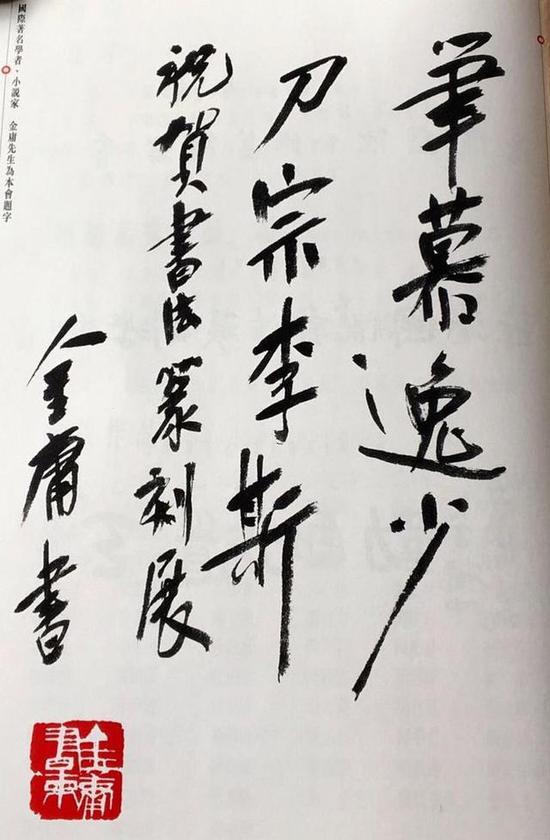 筆慕逸少
刀宗李斯
祝賀書法篆刻展
金庸書
國際著名學者、小說家 金庸先生為本會題字